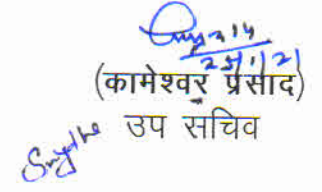 25/1/21
(कामेश्वर प्रसाद)
उप सचिव